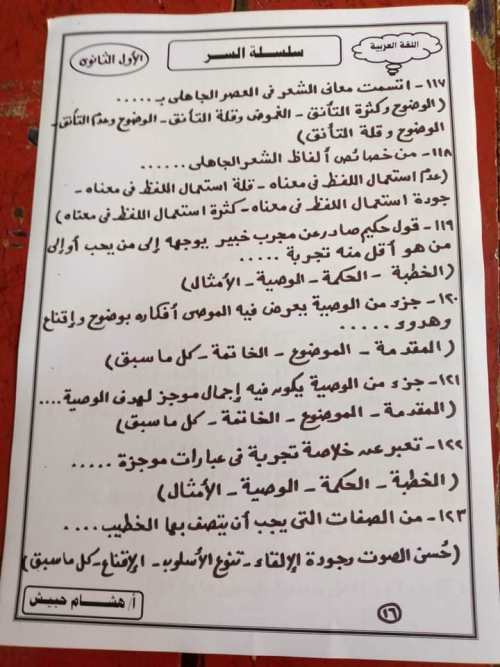 اللغة العربية
سلسلة السر
الأول الثانوى
١١٧- اتسمت معانى الشعر فى العصر الجاهلى بـ .....
(الوضوح وكثرة التأنق - الغموض وقلة التأنق - الوضوح وعدم التأنق -
الوضوح وقلة التأنق)
١١٨- من خصائص ألفاظ الشعر الجاهلى ......
(عدم استعمال اللفظ فى معناه - قلة استعمال اللفظ فى معناه -
جودة استعمال اللفظ فى معناه - كثرة استعمال اللفظ فى معناه)
١١٩- قول حكيم صادر عن مجرب خبير يوجهه إلى من يحب أو إلى
من هو أقل منه تجربة .....
(الخطبة - الحكمة - الوصية - الأمثال)
١٢٠- جزء من الوصية يعرض فيه الموصى أفكاره بوضوح وإقناع
وهدوء .....
(المقدمة - الموضوع - الخاتمة - كل ما سبق)
١٢١- جزء من الوصية يكون فيه إجمال موجز لهدف الوصية ....
(المقدمة - الموضوع - الخاتمة - كل ما سبق)
١٢٢- تعبر عن خلاصة تجربة فى عبارات موجزة .....
(الخطبة - الحكمة - الوصية - الأمثال)
١٢٣- من الصفات التى يجب أن يتصف بها الخطيب ....
(حُسن الصوت وجودة الإلقاء - تنوع الأسلوب - الإقناع - كل ما سبق)
١٦
أ/ هشام حبيش